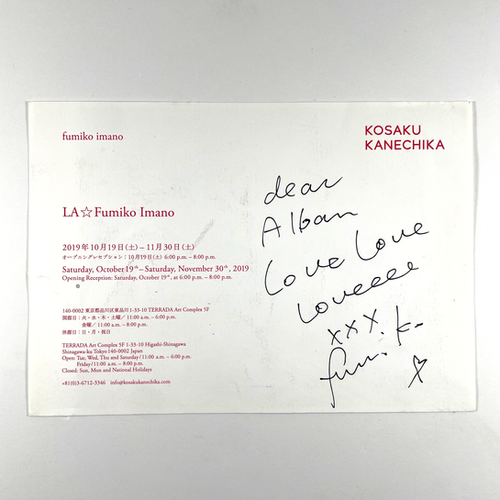 fumiko imano
KOSAKU
KANECHIKA
LA☆Fumiko Imano
2019年10月19日(土) – 11月30日(土)
オープニングレセプション:10月19日(土) 6:00 p.m. – 8:00 p.m.
Saturday, October 19th – Saturday, November 30th, 2019
Opening Reception: Saturday, October 19th, at 6:00 p.m. – 8:00 p.m.
140-0002 東京都品川区東品川 1-33-10 TERRADA Art Complex 5F
開廊日:火・水・木・土曜/11:00 a.m. – 6:00 p.m.
金曜/11:00 a.m. – 8:00 p.m.
休廊日:日・月・祝日
TERRADA Art Complex 5F 1-33-10 Higashi-Shinagawa
Shinagawa-ku Tokyo 140-0002 Japan
Open: Tue, Wed, Thu and Saturday/11:00 a.m. – 6:00 p.m.
Friday/11:00 a.m. – 8:00 p.m.
Closed: Sun, Mon and National Holidays
+81(0)3-6712-3346 info@kosakukanechika.com
dear
Alban
Love Love
Loveeee
xxx.